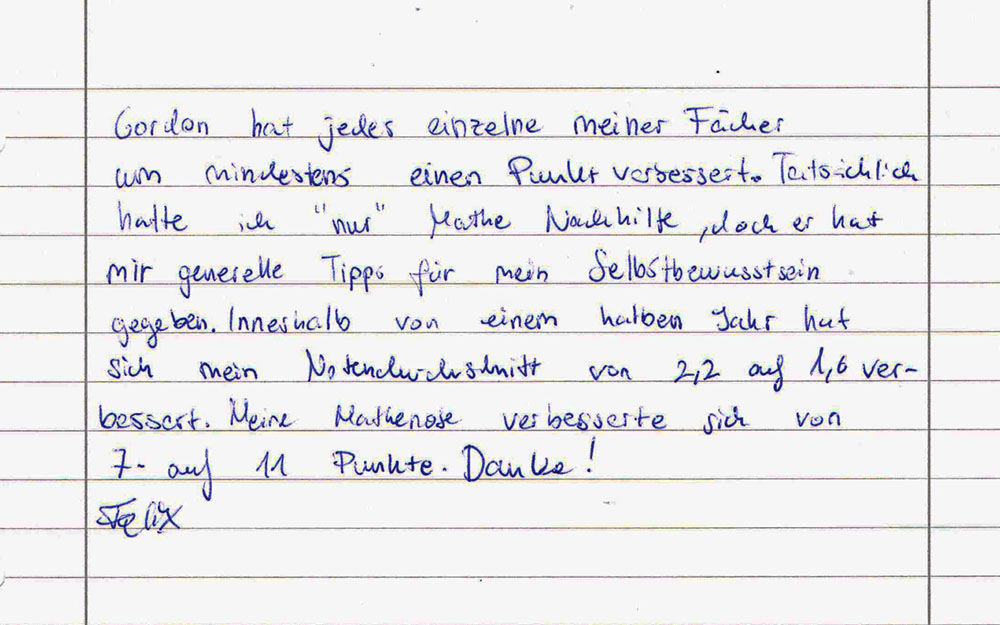 Gordon hat jedes einzelne meiner Fächer
um mindestens einen Punkt verbessert. Tatsächlich
hatte ich "nur" Mathe Nachhilfe, doch er hat
mir generelle Tipps für mein Selbstbewusstsein
gegeben. Innerhalb von einem halben Jahr hat
sich mein Notendurchschnitt von 2,2 auf 1,6 ver-
bessert. Meine Mathenote verbesserte sich von
7- auf 11 Punkte. Danke!
Felix